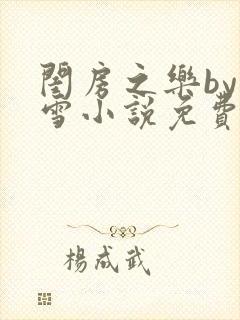 閨房之樂by
雪小說免費
楊成武